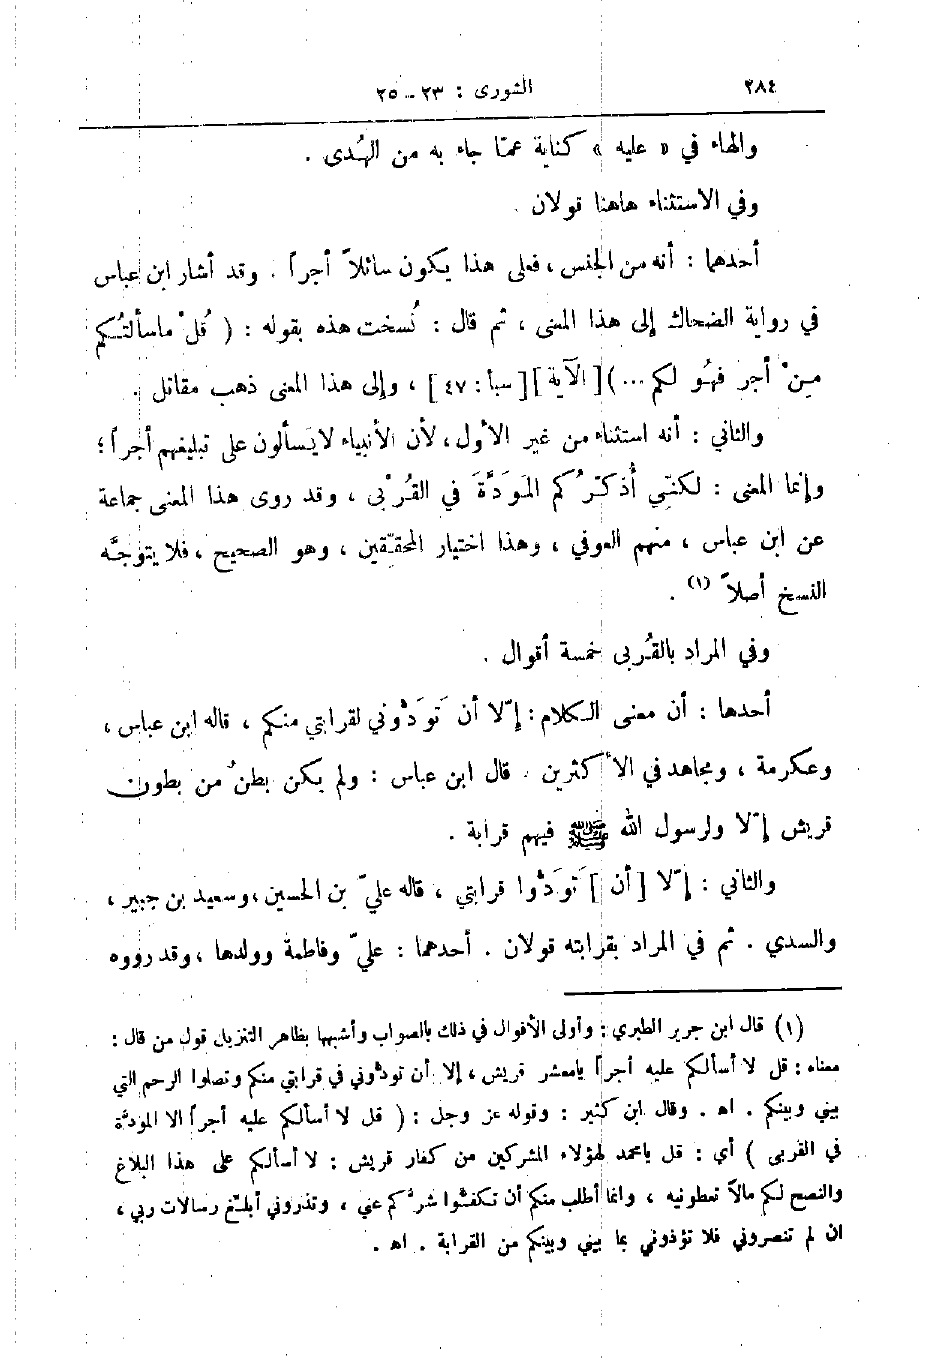 ٢٨٤
الشورى : ٢٣ - ٢٥
والهاء في « عليه » كناية عمّا جاء به من الهُدى .
وفي الاستثناء هاهنا قولان .
أحدهما : أنه من الجنس ، فعلى هذا يكون سائلاً أجراً . وقد أشار ابن عباس
في رواية الضحاك إلى هذا المعنى ، ثم قال : نُسخت هذه بقوله : ( قُلْ ماسألتُكم
مِنْ أجر فهُو لكم ... ) [ الآية ] [ سبأ : ٤٧ ] ، وإلى هذا المعنى ذهب مقاتل .
والثاني : أنه استثناء من غير الأول ، لأن الأنبياء لا يَسألون على تبليغهم أجراً ؛
وإنما المعنى : لكنّي أُذكّرُكم المَوَدَّةَ في القُرْبى ، وقد روى هذا المعنى جماعة
عن ابن عباس ، منهم العوفي ، وهذا اختيار المحقّقين ، وهو الصحيح ، فلا يتوجَّه
النسخ أصلاً (١) .
وفي المراد بالقُربى خمسة أقوال .
أحدها : أن معنى الكلام : إلّا أن تَوَدُّوني لقرابتي منكم ، قاله ابن عباس ،
وعكرمة ، ومجاهد في الأكثرين . قال ابن عباس : ولم يكن بطنٌ من بطون
قريش إلّا ولرسول الله ﷺ فيهم قرابة .
والثاني : إلّا [ أن ] تَوَدُّوا قرابتي ، قاله عليّ بن الحسين ، وسعيد بن جبير ،
والسدي . ثم في المراد بقرابته قولان . أحدهما : عليّ وفاطمة وولدها ، وقد رووه
(١) قال ابن جرير الطبري : وأولى الأقوال في ذلك بالصواب وأشبهها بظاهر التنزيل قول من قال :
معناه : قل لا أسألكم عليه أجراً يامعشر قريش ، إلا أن تودّوني في قرابتي منكم وتصلوا الرحم التي
بيني وبينكم . اه . وقال ابن كثير : وقوله عز وجل : ( قل لا أسألكم عليه أجراً الا المودّة
في القربى ) أي : قل يامحمد لهؤلاء المشركين من كفار قريش : لا أسألكم على هذا البلاغ
والنصح لكم مالاً تعطونيه ، وانما أطلب منكم أن تكفّوا شرَّكم عني ، وتذروني أبلّغ رسالات ربي ،
ان لم تنصروني فلا تؤذوني بما بيني وبينكم من القرابة . اه .